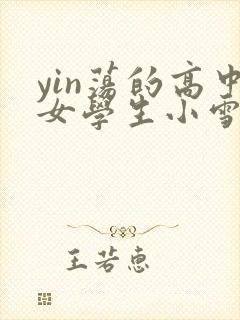 yin蕩的高中
女學生小雪
王若惠